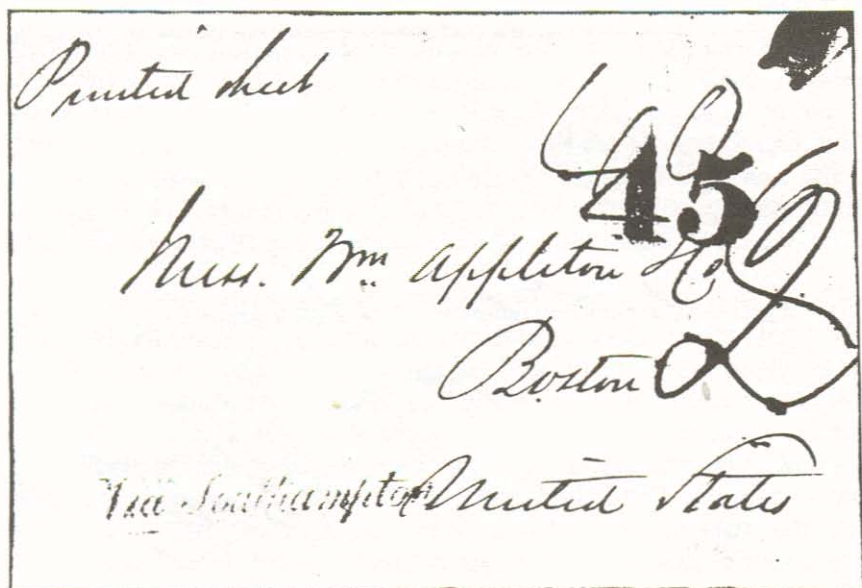 Printed sheet
45
2
Mess. Wm Appleton & Co
Boston
Via Southampton United States